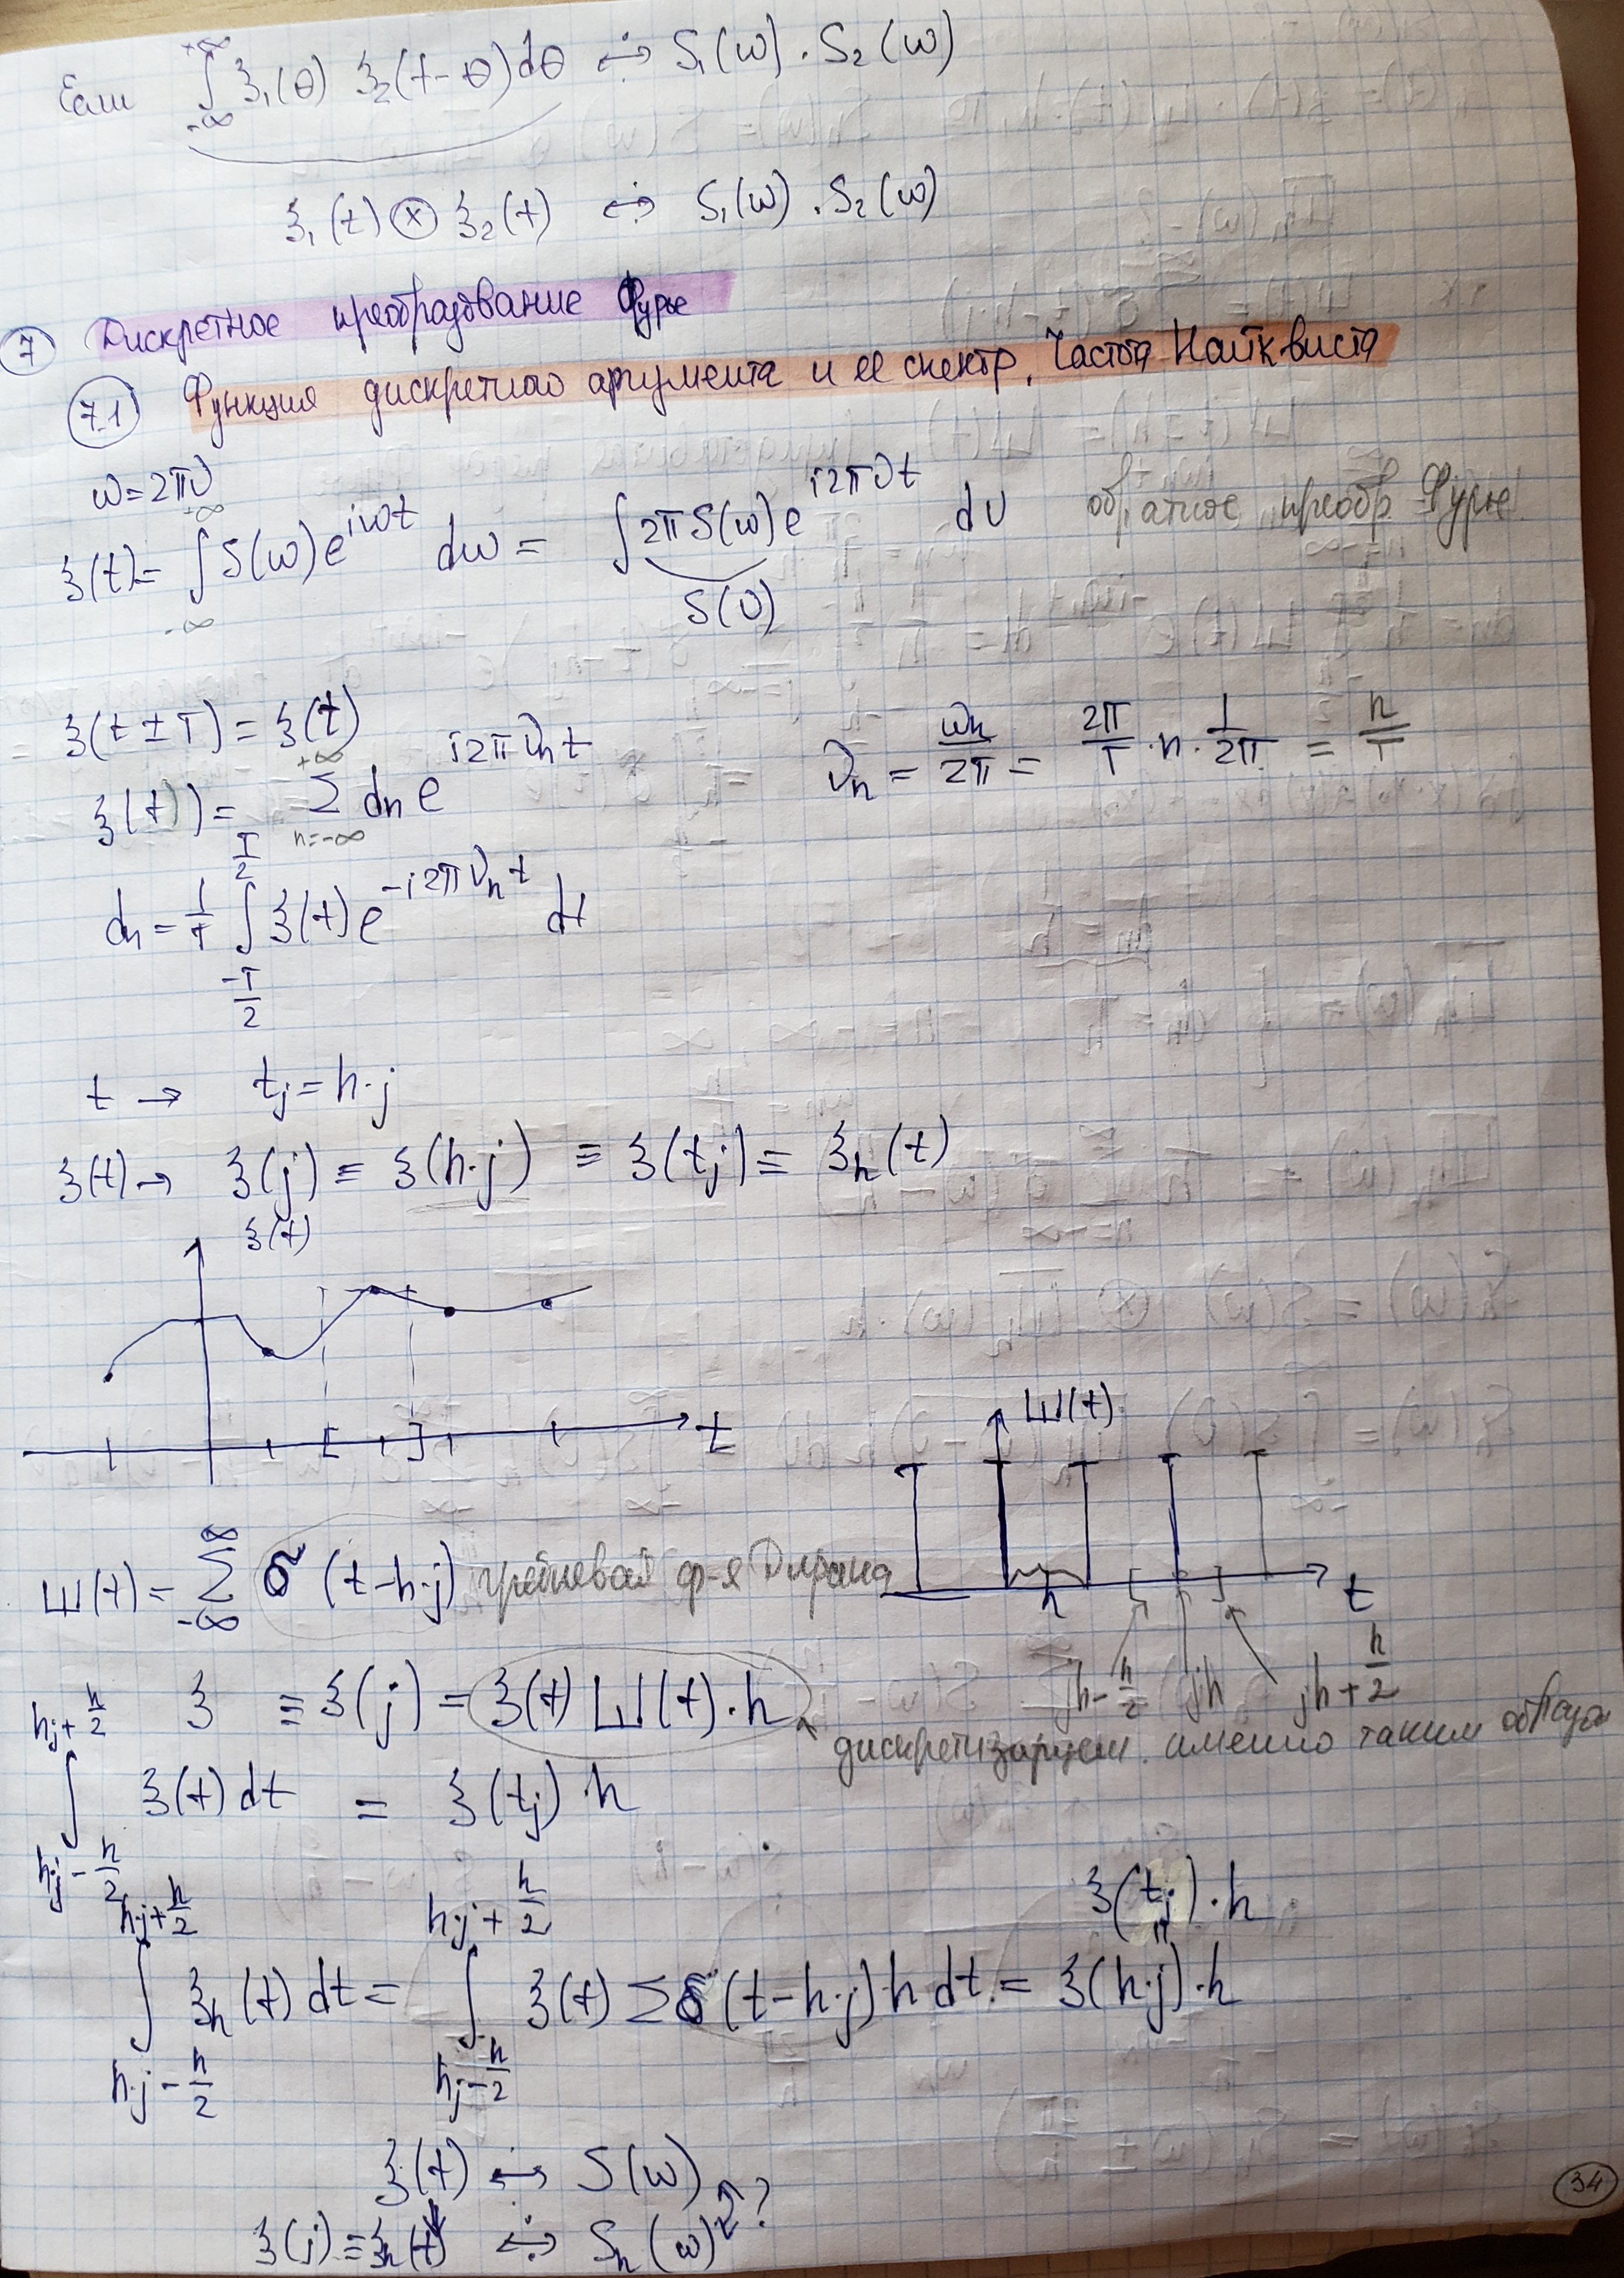 Если ∫_{-∞}^{+∞} ξ₁(θ) ξ₂(t-θ)dθ ↔ S₁(ω)·S₂(ω)
ξ₁(t) ⊗ ξ₂(t) ↔ S₁(ω)·S₂(ω)
7 Дискретное преобразование Фурье
7.1 Функция дискретного аргумента и ее спектр. Частота Найквиста
ω=2πν
ξ(t)= ∫_{-∞}^{+∞} S(ω)e^{iωt} dω = ∫2πS(ω)e^{i2πνt} dν обратное преобр. Фурье
S(ν)
ξ(t±T) = ξ(t)
ν_n = ω_n/2π = 2π/T · n · 1/2π = n/T
ξ(t) = Σ_{n=-∞}^{+∞} d_n e^{i2πν_n t}
d_n = 1/T ∫_{-T/2}^{T/2} ξ(t)e^{-i2πν_n t} dt
t → t_j = h·j
ξ(t) → ξ(j) ≡ ξ(h·j) ≡ ξ(t_j) ≡ ξ_h(t)
ξ(t)
t
Ш(t)
h
t
jh - h/2
jh
jh + h/2
Ш(t) = Σ_{-∞}^{∞} δ(t-h·j) гребневая ф-я Дирака
ξ ≡ ξ(j) = ξ(t) Ш(t)·h
дискретизируем именно таким образом
∫_{hj-h/2}^{hj+h/2} ξ(t)dt = ξ(t_j)·h
ξ(t_j)·h
∫_{h·j-h/2}^{h·j+h/2} ξ_h(t)dt = ∫_{hj-h/2}^{h·j+h/2} ξ(t) Σδ(t-h·j)·h dt = ξ(h·j)·h
ξ(t) ↔ S(ω)
ξ(j) ≡ ξ_h(t) ↔ S_h(ω) ?
34